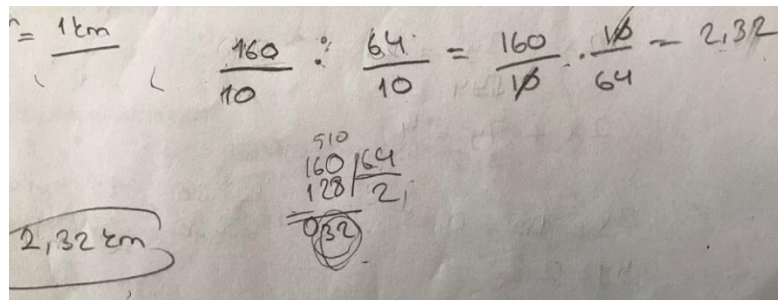 = 1 km
160/10 : 64/10 = 160/10 · 10/64 = 2,32
510
160 | 64
128 | 2,
032
2,32 km